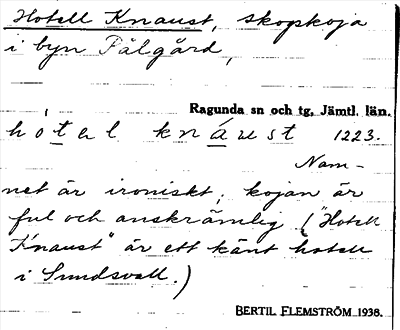 Hotell Knaust, skogskoja
i byn Pålgård,
Ragunda sn och tg, Jämtl. län.
hó̱tel knáust 1223.
Nam-
net är ironiskt; kojan är
ful och anskrämlig ("Hotell
Knaust" är ett känt hotell
i Sundsvall.)
BERTIL FLEMSTRÖM 1938.